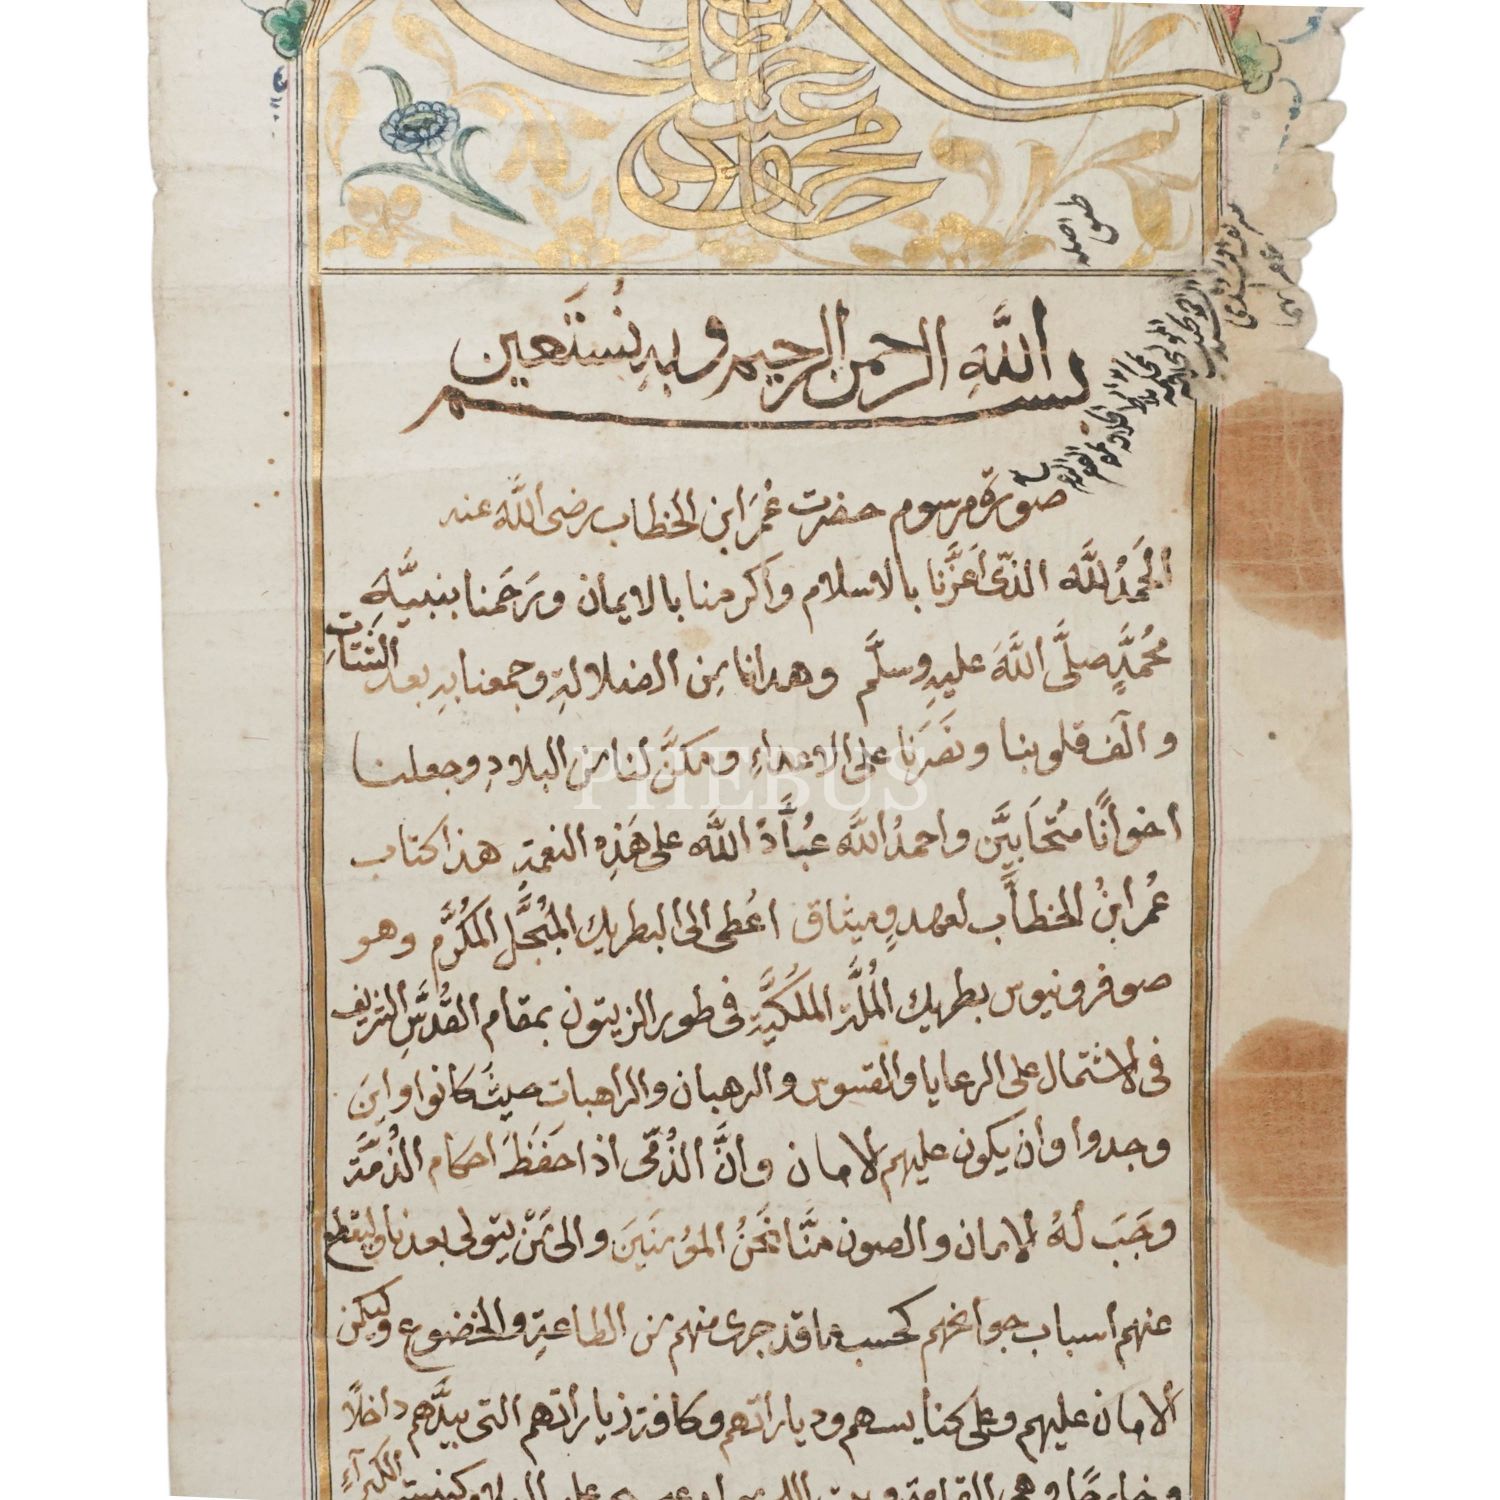 بسم الله الرحمن الرحيم وبه نستعين
صورة مرسوم حضرت عُمَر ابن الخطاب رضى اللَّه عنه
الحَمدُ للَّه الذّى اَعَزَّنا بالاسلام واكرمنا بالايمان ورَحَمنا بنبيَّهِ
محُمَّدٍ صلَّى اللَّهَ عليهِ وسلَّم وهدانا مِن الضلالةِ وجمعنا بهِ بعد الشَتَاتِ
والَّف قلوبنا ونَصَرَنا على الاعداءِ ومكَّن لنا من البلادِ وجعلنا
اخوانًا متُحَابيَّن واحمدُ اللَّه عُبَّادَ اللَّه على هَذِهِ النعمة هذا كتاب
عُمر ابنُ الخطَّاب لعهدٍ وميثاق اعُطى الى البطريك المُبجَّل المكُرَّم وهو
صوفرونيوس بطريك المُلَّة الملَكُيَّة فى طور الزيتون بمقام القُدَّسِ الشريف
فى الاشتمال على الرعايا والقسوس والرهبان والراهبات حيثُ كانوا واينَ
وجدوا وان يكون عليهم الامان وانَّ الذُمّى اذا حَفَظَ احكام الذُمَّة
وجَبَ لهُ الامان والصون منَّا نحَنُ المؤمنَينَ والى مَنْ يتولى بعدنا وليقطع
عنهم اسباب جوانحهم كحسب ما قد جرى منهم من الطاعةِ والخضوع وليكن
الامان عليهم وعلى كنايسهم ودياراتهم وكافة زياراتهم التى بيدَّهم داخلًا
PHEBUS